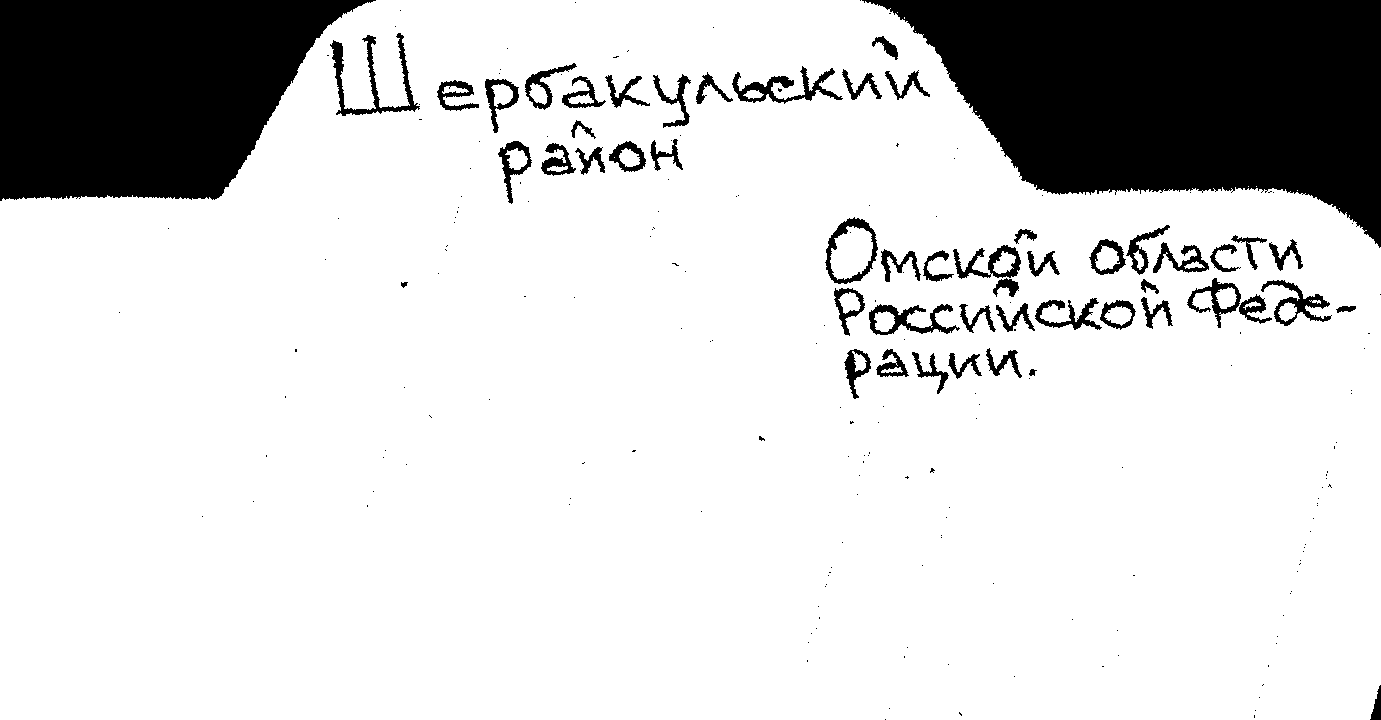 Шербакульский
район
Омской области
Российской Феде-
рации.